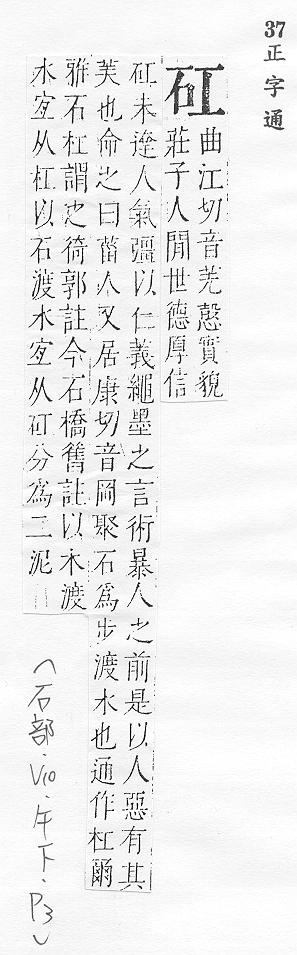 37正字通
矼
曲江切音羌慤實貌
莊子人閒世德厚信
矼未達人氣彊以仁義繩墨之言術暴人之前是以人惡有其
美也命之曰菑人又居康切音岡聚石爲步渡水也通作杠爾
雅石杠謂之徛郭註今石橋舊註以木渡
水宜从杠以石渡水宜从矼分爲二泥
(石部.V10.午下.P3)